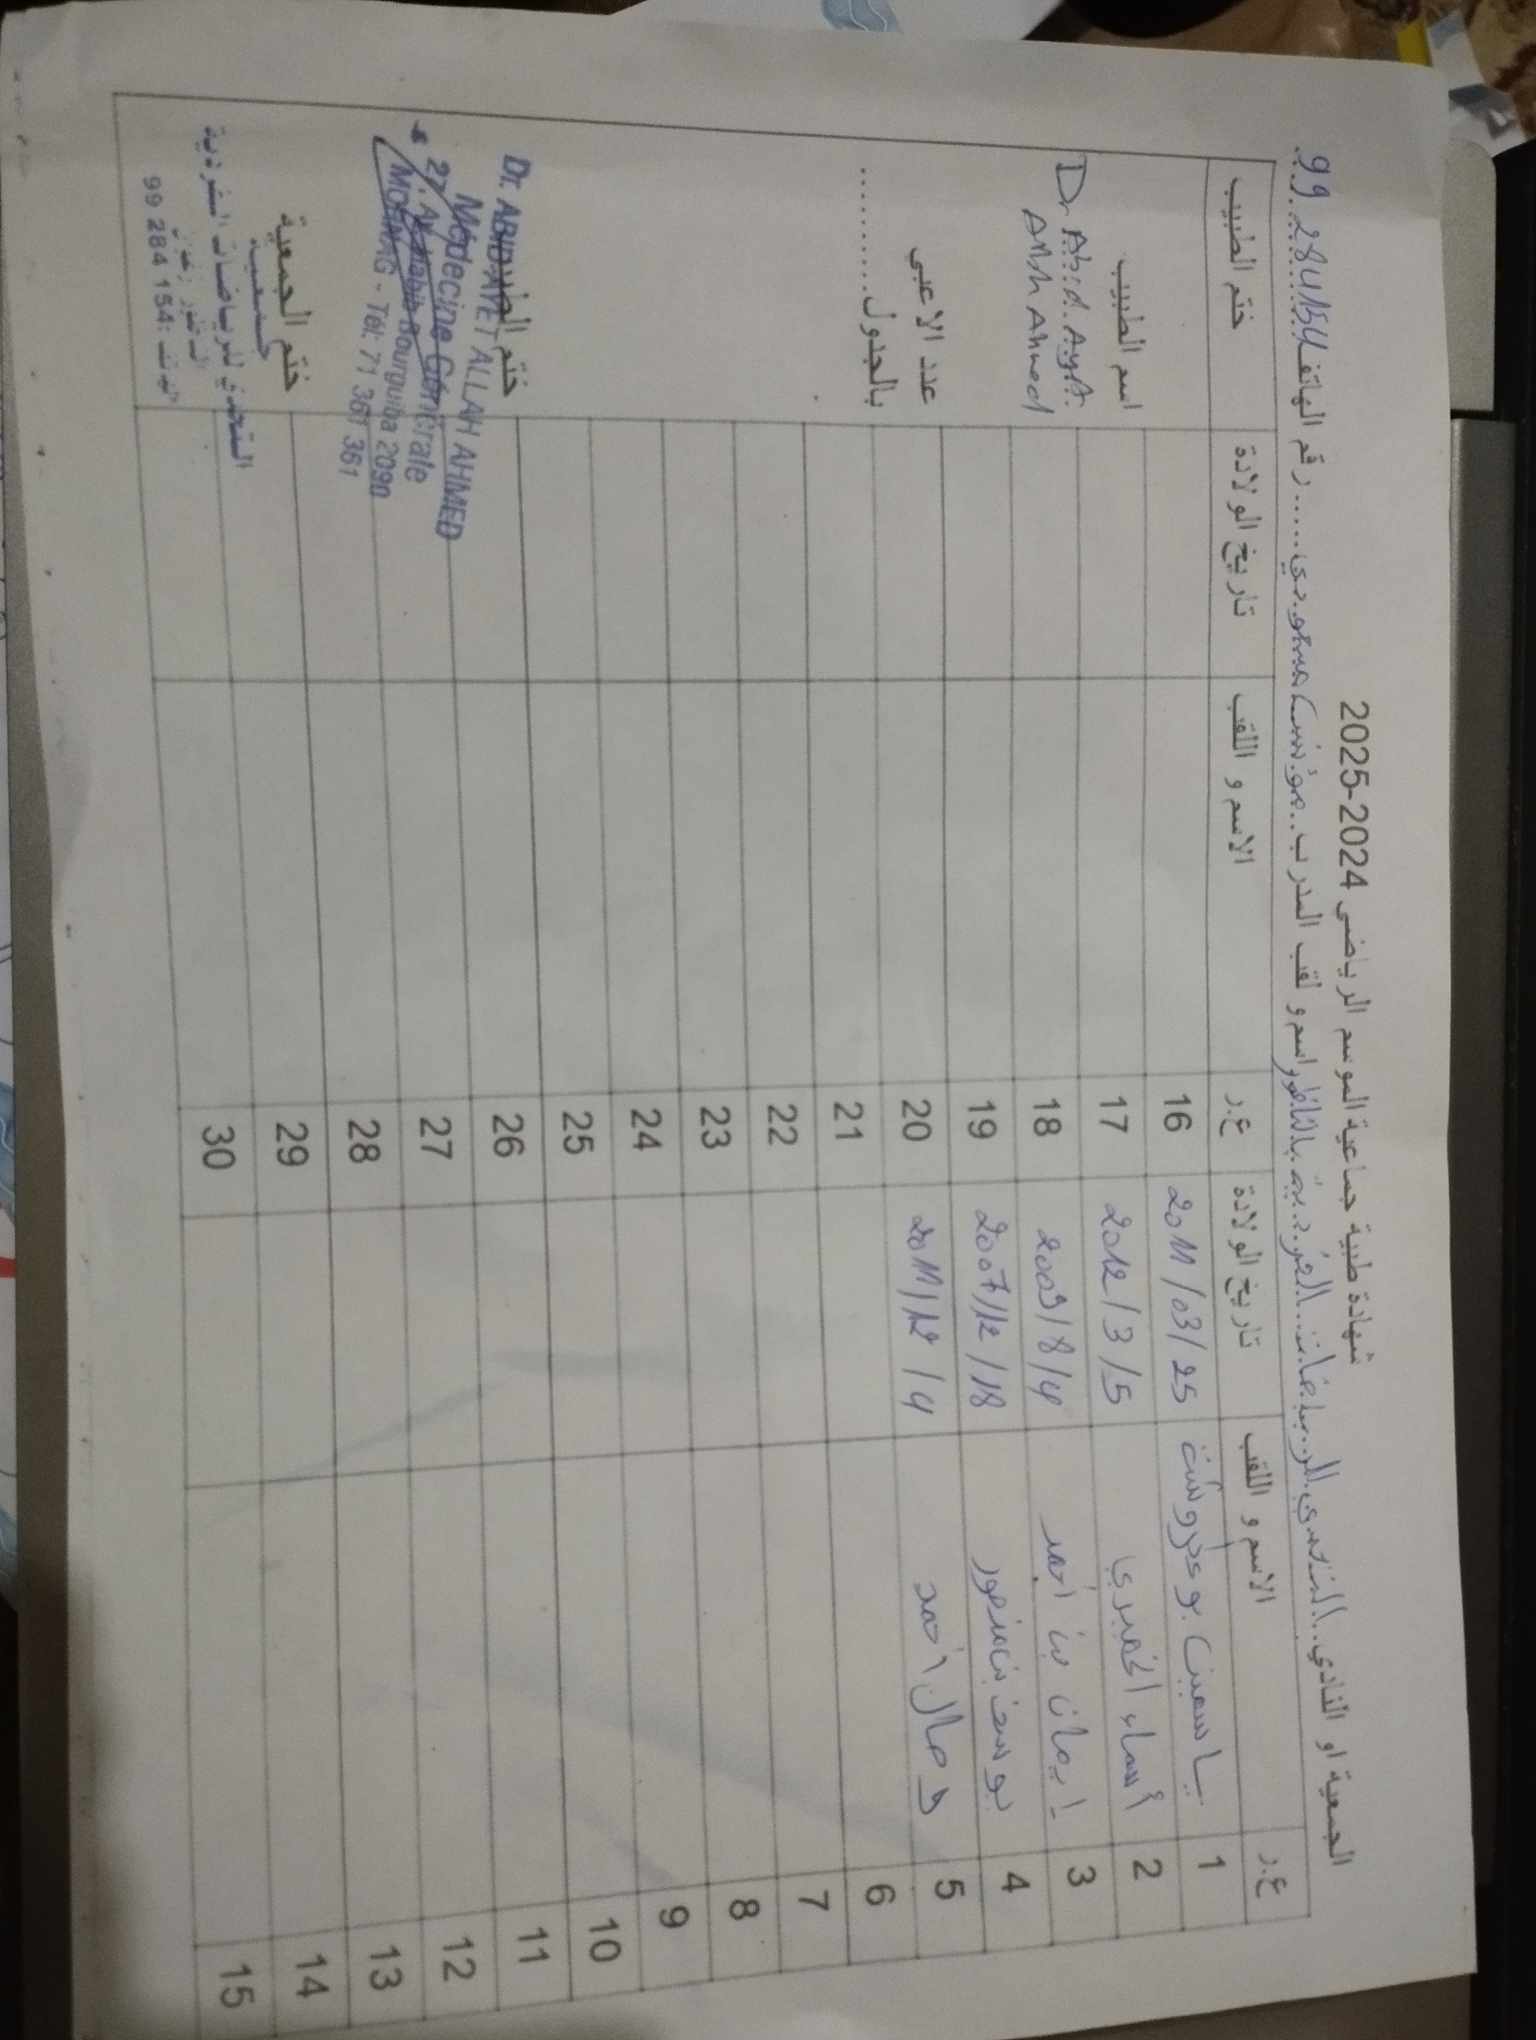 شهادة طبية جماعية الموسم الرياضي 2024-2025
الجمعية او النادي..التحدي للرياضات..الفردية بالناظور اسم و لقب المدرب..مؤنس مسعودي.....رقم الهاتف 99.284154
ع.ر الاسم و اللقب تاريخ الولادة ع.ر الاسم و اللقب تاريخ الولادة ختم الطبيب
1 ياسمين بوعكروشة 2011/03/25 16
2 أسماء الخميري 2012/3/5 17
3 إيمان بن أحمد 2009/8/4 18
4 يوسف بن منصور 2007/12/18 19
5 وصال أحمد 2011/12/4 20
6 21
7 22
8 23
9 24
10 25
11 26
12 27
13 28
14 29
15 30
اسم الطبيب
Dr Abid. Ayet.
Allah Ahmed
عدد الاعبي
بالجدول..........
ختم الطبيب
Dr. ABID AYET ALLAH AHMED
Médecine Générale
27, Av. Habib Bourguiba 2090
MORNAG - Tél: 71 361 361
ختم الجمعية
جمعية
التحدي للرياضات الفردية
الهاتف: 99 284 154